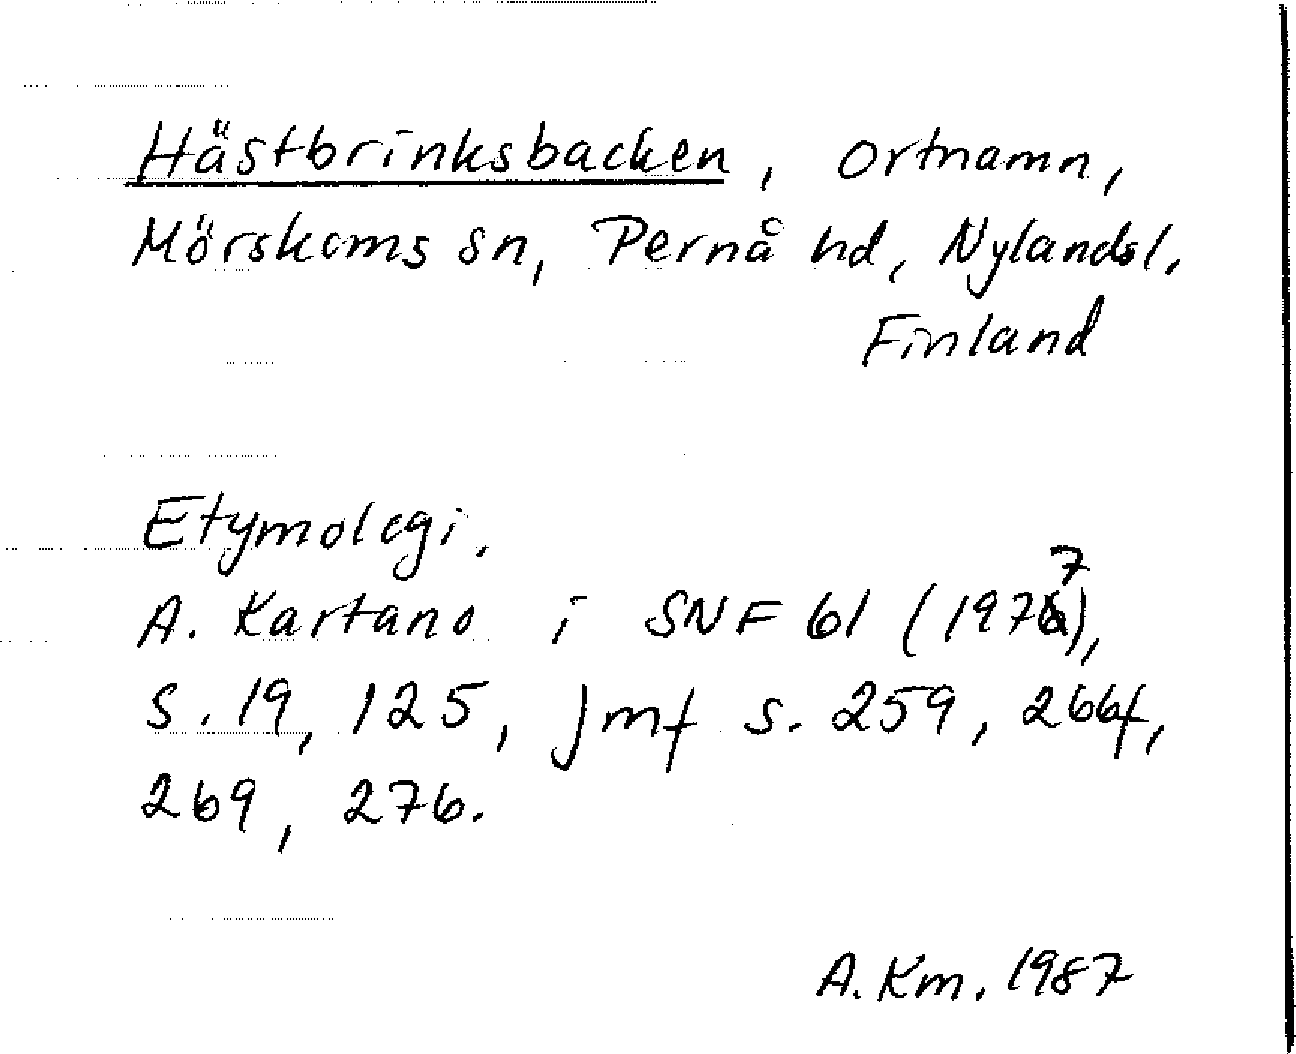 Hästbrinksbacken, ortnamn,
Mörskoms sn, Pernå hd, Nylandsl.
Finland
Etymologi.
A. Kartano i SNF 61 (1977),
s. 19, 125, jmf s. 259, 266f,
269, 276.
A. Km. 1987